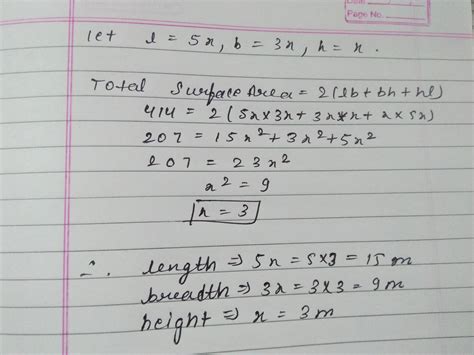 Page No.
let l = 5x, b = 3x, h = x.
Total Surface Area = 2(lb + bh + hl)
414 = 2(5x×3x + 3x×x + x×5x)
207 = 15x² + 3x² + 5x²
207 = 23x²
x² = 9
x = 3
∴ length ⇒ 5x = 5×3 = 15m
breadth ⇒ 3x = 3×3 = 9m
height ⇒ x = 3m